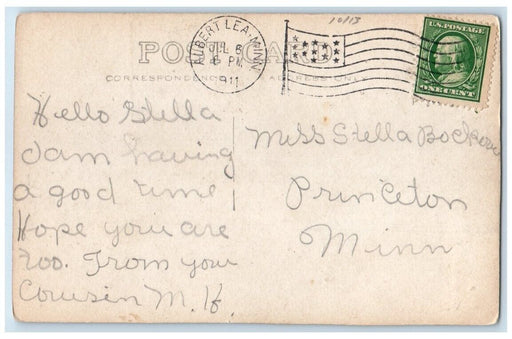 10/13
ALBERT LEA, MINN.
JUL 5
6 PM
1911
U.S. POSTAGE
ONE CENT
POST CARD
CORRESPONDENCE
ADDRESS ONLY
Hello Stella
I am having
a good time
Hope you are
too. From your
Cousin M. H.
Miss Stella
Princeton
Minn